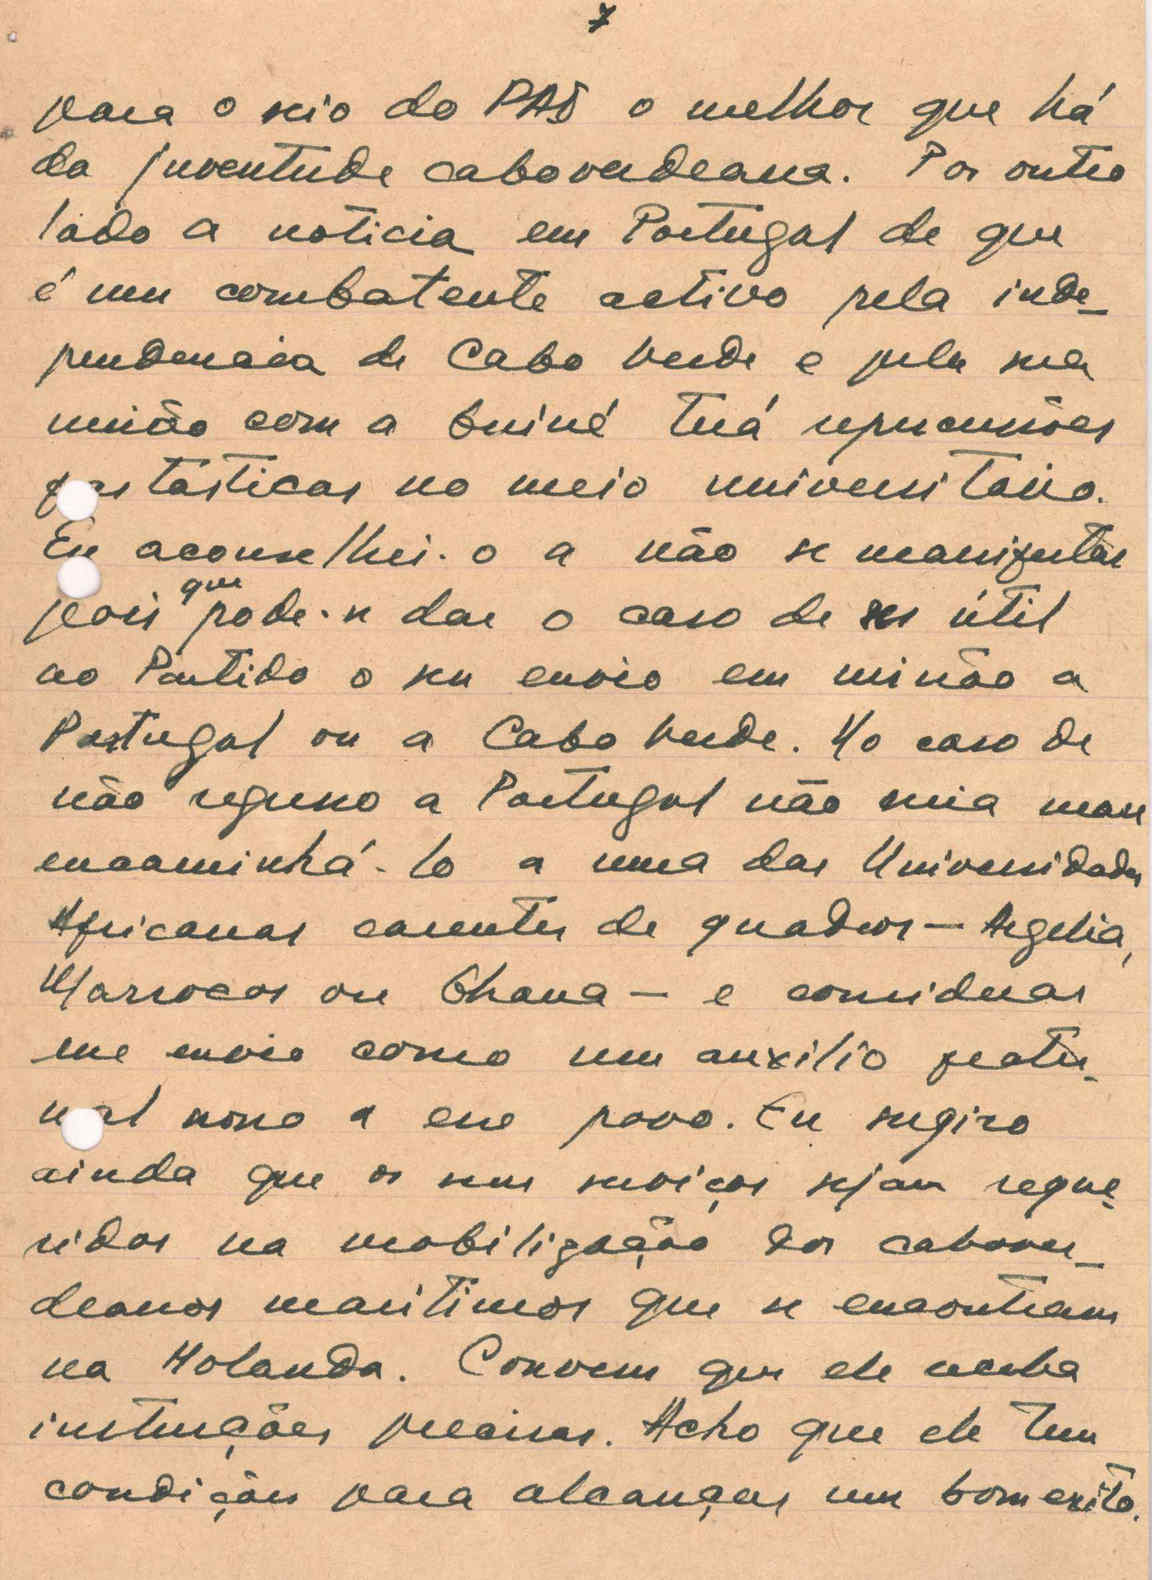 7
para o seio do PAI o melhor que há
da juventude caboverdeana. Por outro
lado a noticia em Portugal de que
é um combatente activo pela inde-
pendencia de Cabo Verde e pela sua
união com a Guiné terá repercussões
fantásticas no meio universitário.
Eu aconselhei-o a não se manifestar
pois que pode-se dar o caso de ser útil
ao Partido o seu envio em missão a
Portugal ou a Cabo Verde. No caso de
não regresso a Portugal não seria mau
encaminhá-lo a uma das Universidades
Africanas carentes de quadros — Argelia,
Marrocos ou Ghana — e considerar
esse envio como um auxilio frater-
nal nosso a esse povo. Eu sugiro
ainda que os seus serviços sejam reque-
ridos na mobilização dos cabover-
deanos maritimos que se encontram
na Holanda. Convem que ele receba
instruções precisas. Acho que ele tem
condições para alcançar um bom exito.